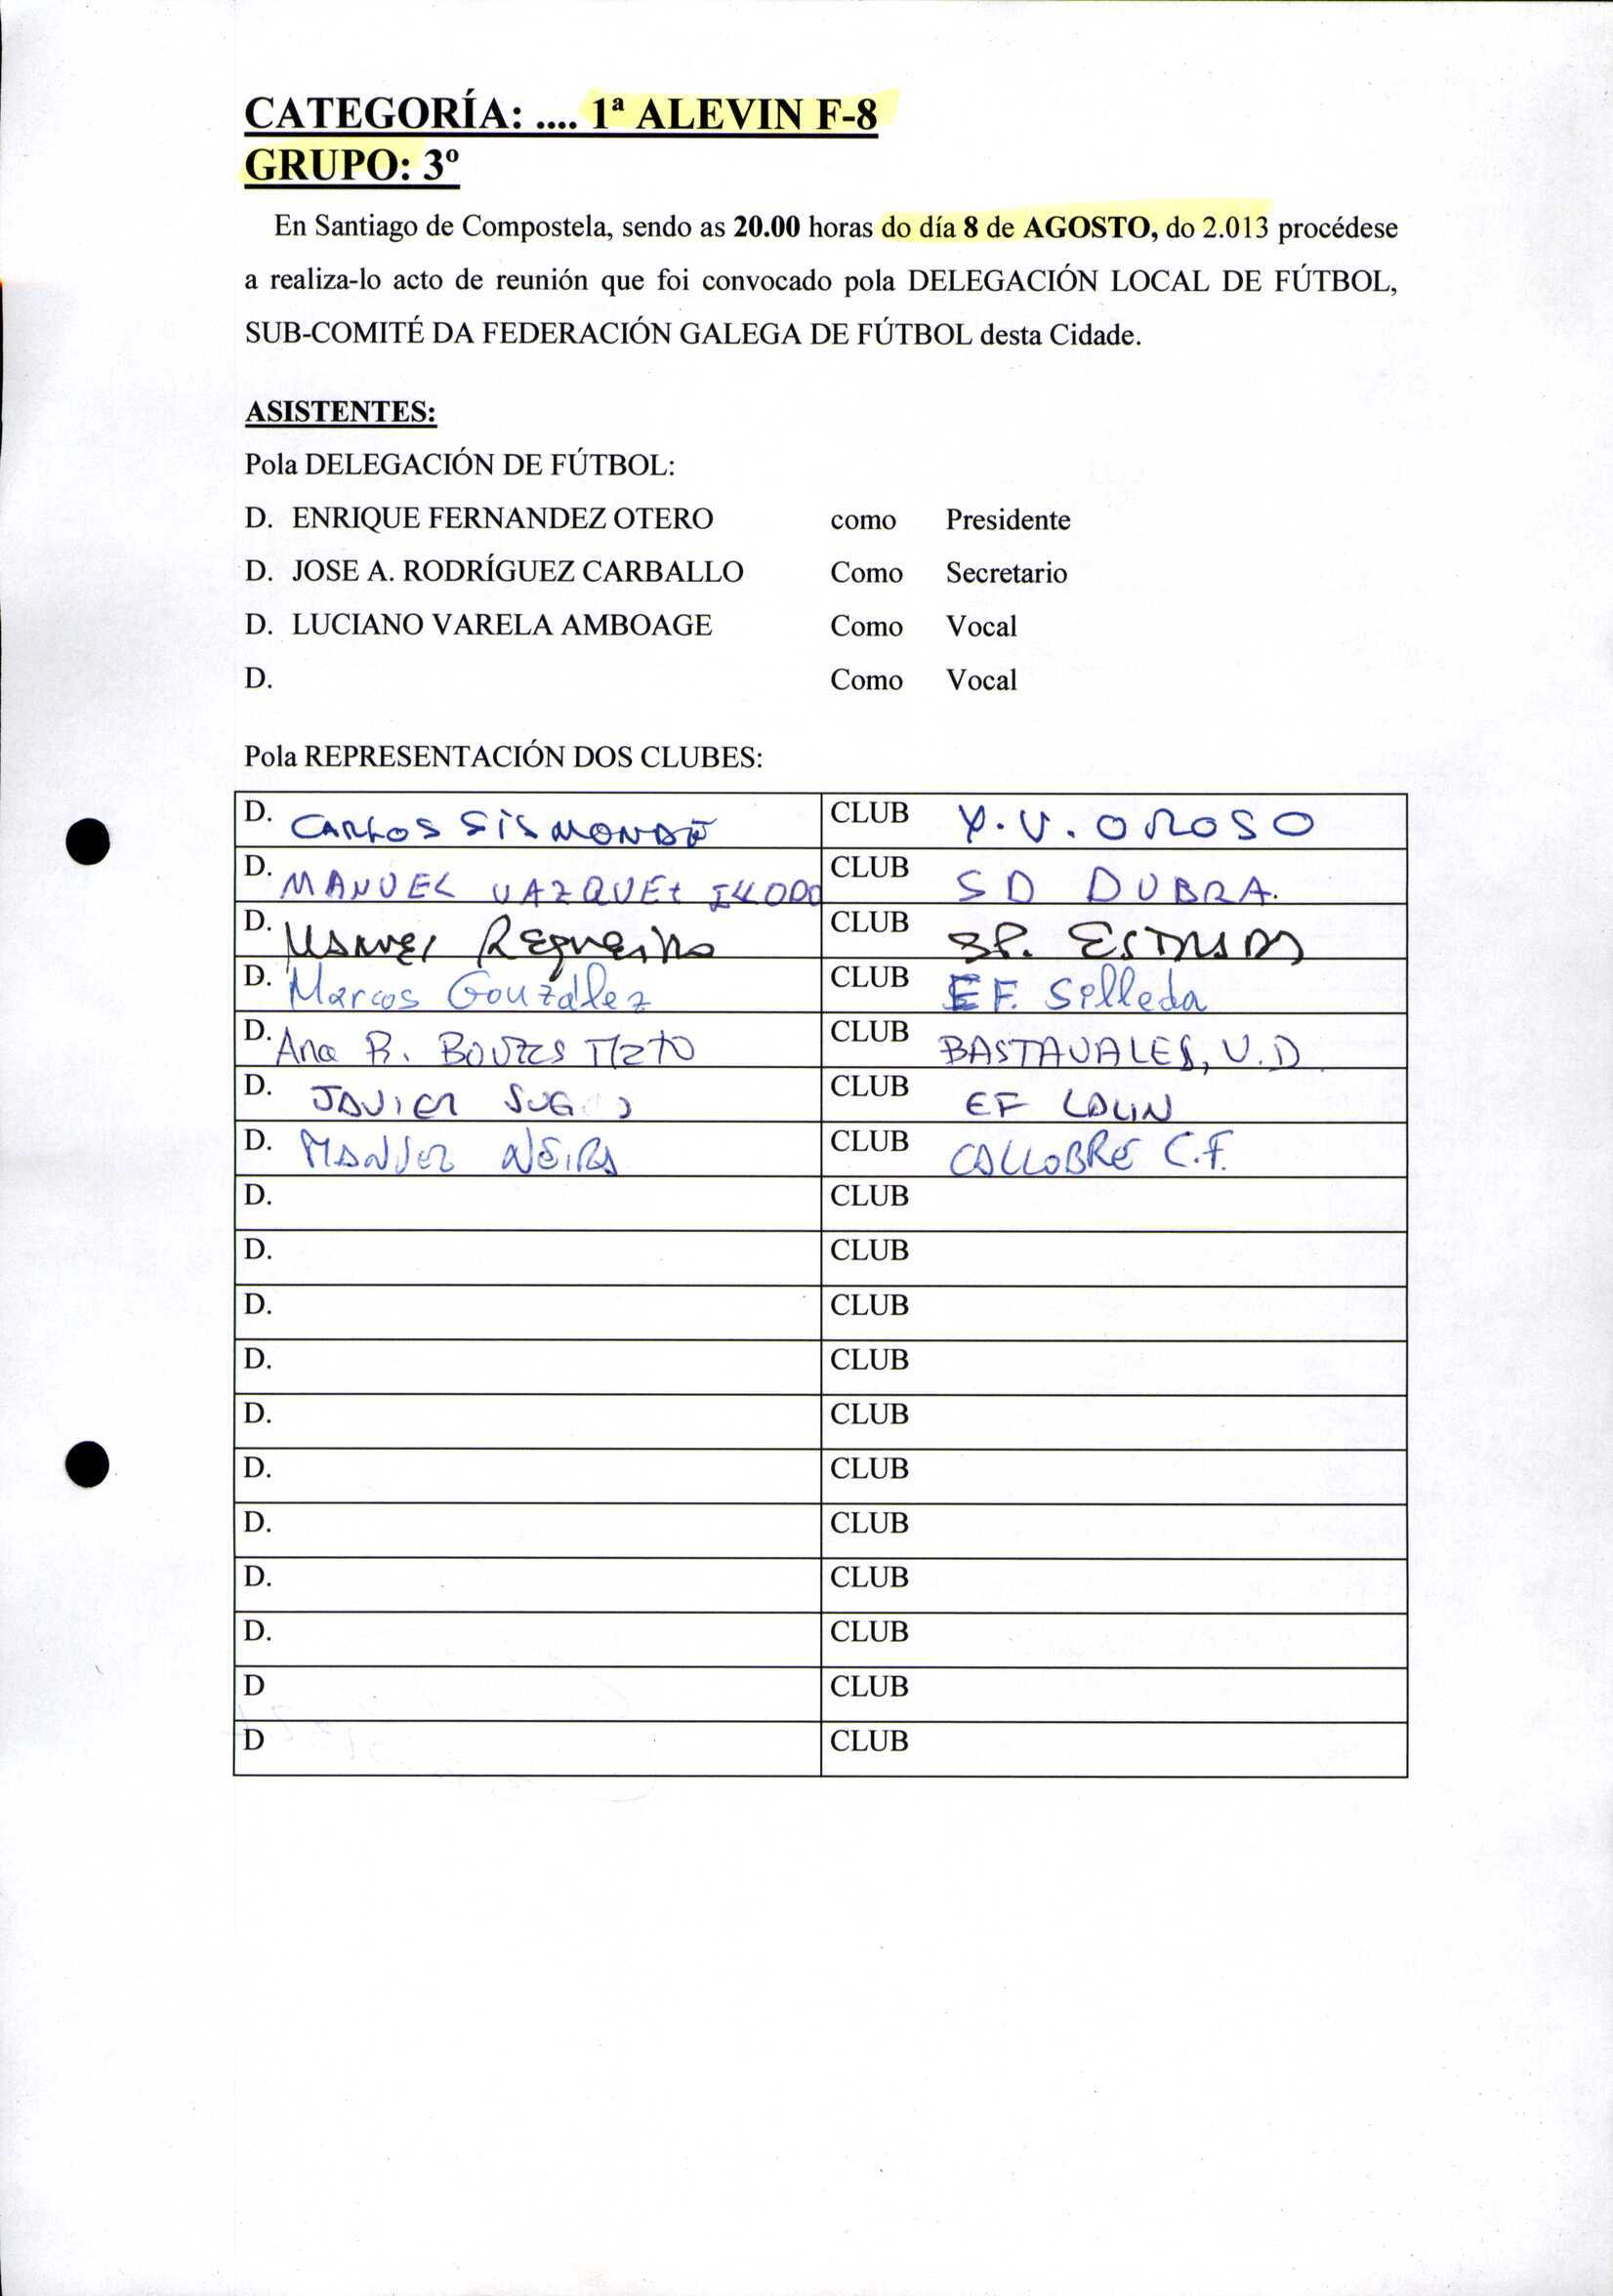 CATEGORÍA: .... 1ª ALEVIN F-8
GRUPO: 3º
En Santiago de Compostela, sendo as 20.00 horas do día 8 de AGOSTO, do 2.013 procédese
a realiza-lo acto de reunión que foi convocado pola DELEGACIÓN LOCAL DE FÚTBOL,
SUB-COMITÉ DA FEDERACIÓN GALEGA DE FÚTBOL desta Cidade.
ASISTENTES:
Pola DELEGACIÓN DE FÚTBOL:
D. ENRIQUE FERNANDEZ OTERO como Presidente
D. JOSE A. RODRÍGUEZ CARBALLO Como Secretario
D. LUCIANO VARELA AMBOAGE Como Vocal
D. Como Vocal
Pola REPRESENTACIÓN DOS CLUBES:
D. CARLOS CLUB OROSO
D. MANUEL VAZQUEZ CLUB SD DUBRA.
D. MANUEL CLUB SP. ESTRADA
D. Marcos González CLUB E.F. Silleda
D. Ana R. CLUB BASTAVALES, U.D
D. JAVIER CLUB EF LALIN
D. MANUEL NEIRA CLUB CALLOBRE C.F.
D. CLUB
D. CLUB
D. CLUB
D. CLUB
D. CLUB
D. CLUB
D. CLUB
D. CLUB
D. CLUB
D CLUB
D CLUB